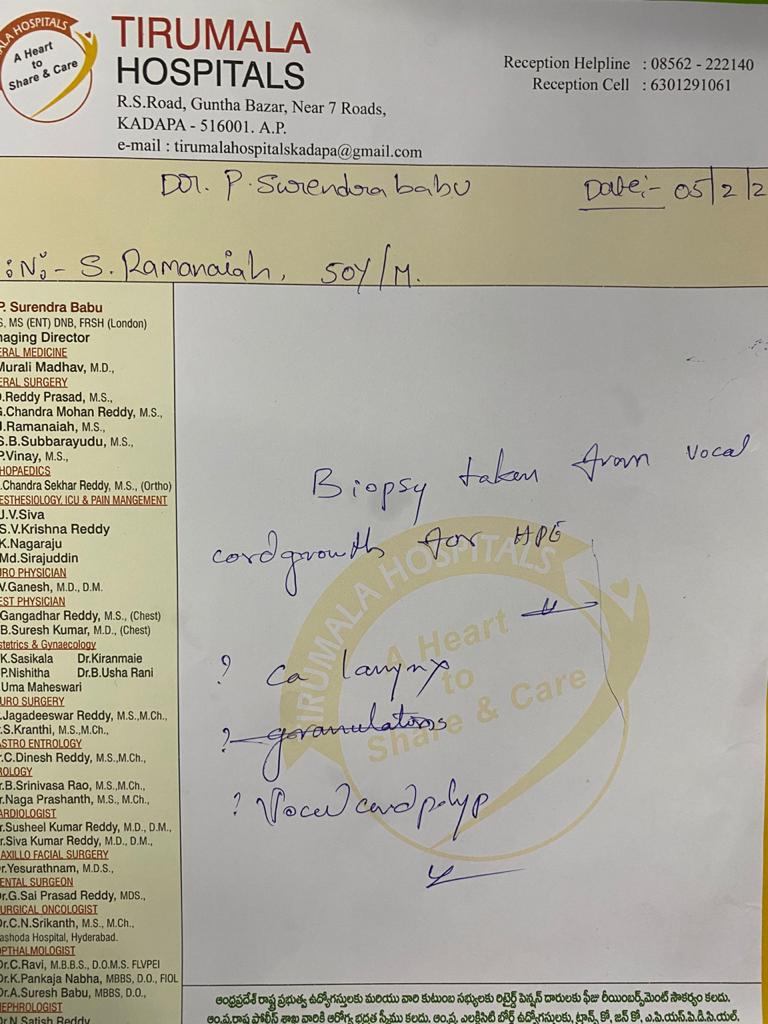 HOSPITALS
A Heart
to
Share & Care
TIRUMALA
HOSPITALS
R.S.Road, Guntha Bazar, Near 7 Roads,
KADAPA - 516001. A.P.
e-mail : tirumalahospitalskadapa@gmail.com
Reception Helpline : 08562 - 222140
Reception Cell : 6301291061
Dr. P. Surendra babu
Date:- 05/2/2
:N:- S. Ramanaiah, 50Y/M.
P. Surendra Babu
S, MS (ENT) DNB, FRSH (London)
naging Director
ERAL MEDICINE
Murali Madhav, M.D.,
ERAL SURGERY
.Reddy Prasad, M.S.,
G.Chandra Mohan Reddy, M.S.,
.Ramanaiah, M.S.,
S.B.Subbarayudu, M.S.,
P.Vinay, M.S.,
HOPAEDICS
.Chandra Sekhar Reddy, M.S., (Ortho)
ESTHESIOLOGY, ICU & PAIN MANGEMENT
J.V.Siva
S.V.Krishna Reddy
K.Nagaraju
Md.Sirajuddin
RO PHYSICIAN
V.Ganesh, M.D., D.M.
EST PHYSICIAN
Gangadhar Reddy, M.S., (Chest)
B.Suresh Kumar, M.D., (Chest)
stetrics & Gynaecology
K.Sasikala Dr.Kiranmaie
P.Nishitha Dr.B.Usha Rani
Uma Maheswari
URO SURGERY
.Jagadeeswar Reddy, M.S.,M.Ch.,
r.S.Kranthi, M.S.,M.Ch.,
ASTRO ENTROLOGY
r.C.Dinesh Reddy, M.S.,M.Ch.,
ROLOGY
r.B.Srinivasa Rao, M.S.,M.Ch.,
r.Naga Prashanth, M.S., M.Ch.,
CARDIOLOGIST
r.Susheel Kumar Reddy, M.D., D.M.,
r.Siva Kumar Reddy, M.D., D.M.,
AXILLO FACIAL SURGERY
r.Yesurathnam, M.D.S.,
ENTAL SURGEON
Dr.G.Sai Prasad Reddy, MDS.,
URGICAL ONCOLOGIST
Dr.C.N.Srikanth, M.S., M.Ch.,
ashoda Hospital, Hyderabad.
OPTHALMOLOGIST
Dr.C.Ravi, M.B.B.S., D.O.M.S. FLVPEI
Dr.K.Pankaja Nabha, MBBS, D.O., FIOL
Dr.A.Suresh Babu, MBBS, D.O.,
NEPHROLOGIST
Dr.N.Satish Reddy
Biopsy taken from vocal
cord growth for HPE
? Ca larynx
? granulations
? Vocal cord polyp
TIRUMALA HOSPITALS
A Heart
to
Share & Care
ఆంధ్రప్రదేశ్ రాష్ట్ర ప్రభుత్వ ఉద్యోగస్తులకు మరియు వారి కుటుంబ సభ్యులకు రిటైర్డ్ పెన్షన్ దారులకు ఫీజు రీయింబర్స్‌మెంట్ సౌకర్యం కలదు.